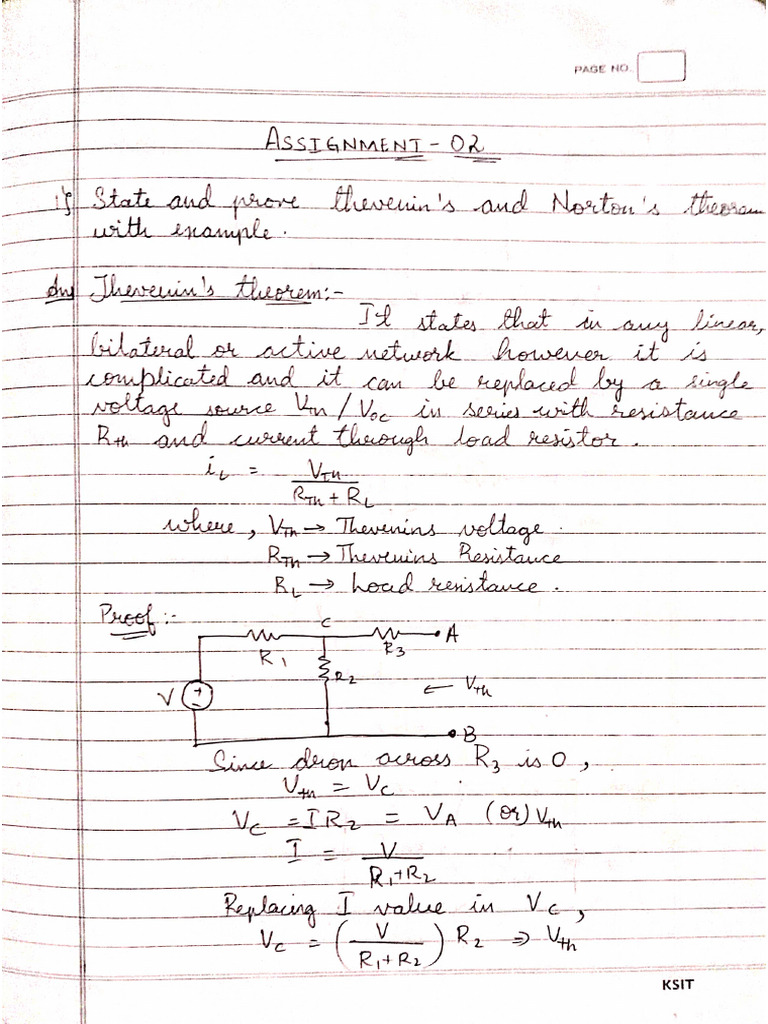 PAGE NO.
ASSIGNMENT - 02
1} State and prove thevenin's and Norton's theorem
with example.
Ans Thevenin's theorem:-
It states that in any linear,
bilateral or active network however it is
complicated and it can be replaced by a single
voltage source Vth / Voc in series with resistance
Rth and current through load resistor.
iL = VTh / (RTh + RL)
where, VTh → Thevenins voltage.
RTh → Thevenins Resistance
RL → Load resistance.
Proof :-
C
R1 R3 A
R2
V + - ← Vth
B
Since drop across R3 is 0,
Vth = Vc
Vc = IR2 = VA (or) Vth
I = V / (R1+R2)
Replacing I value in Vc,
Vc = (V / (R1+R2)) R2 ⇒ Vth
KSIT